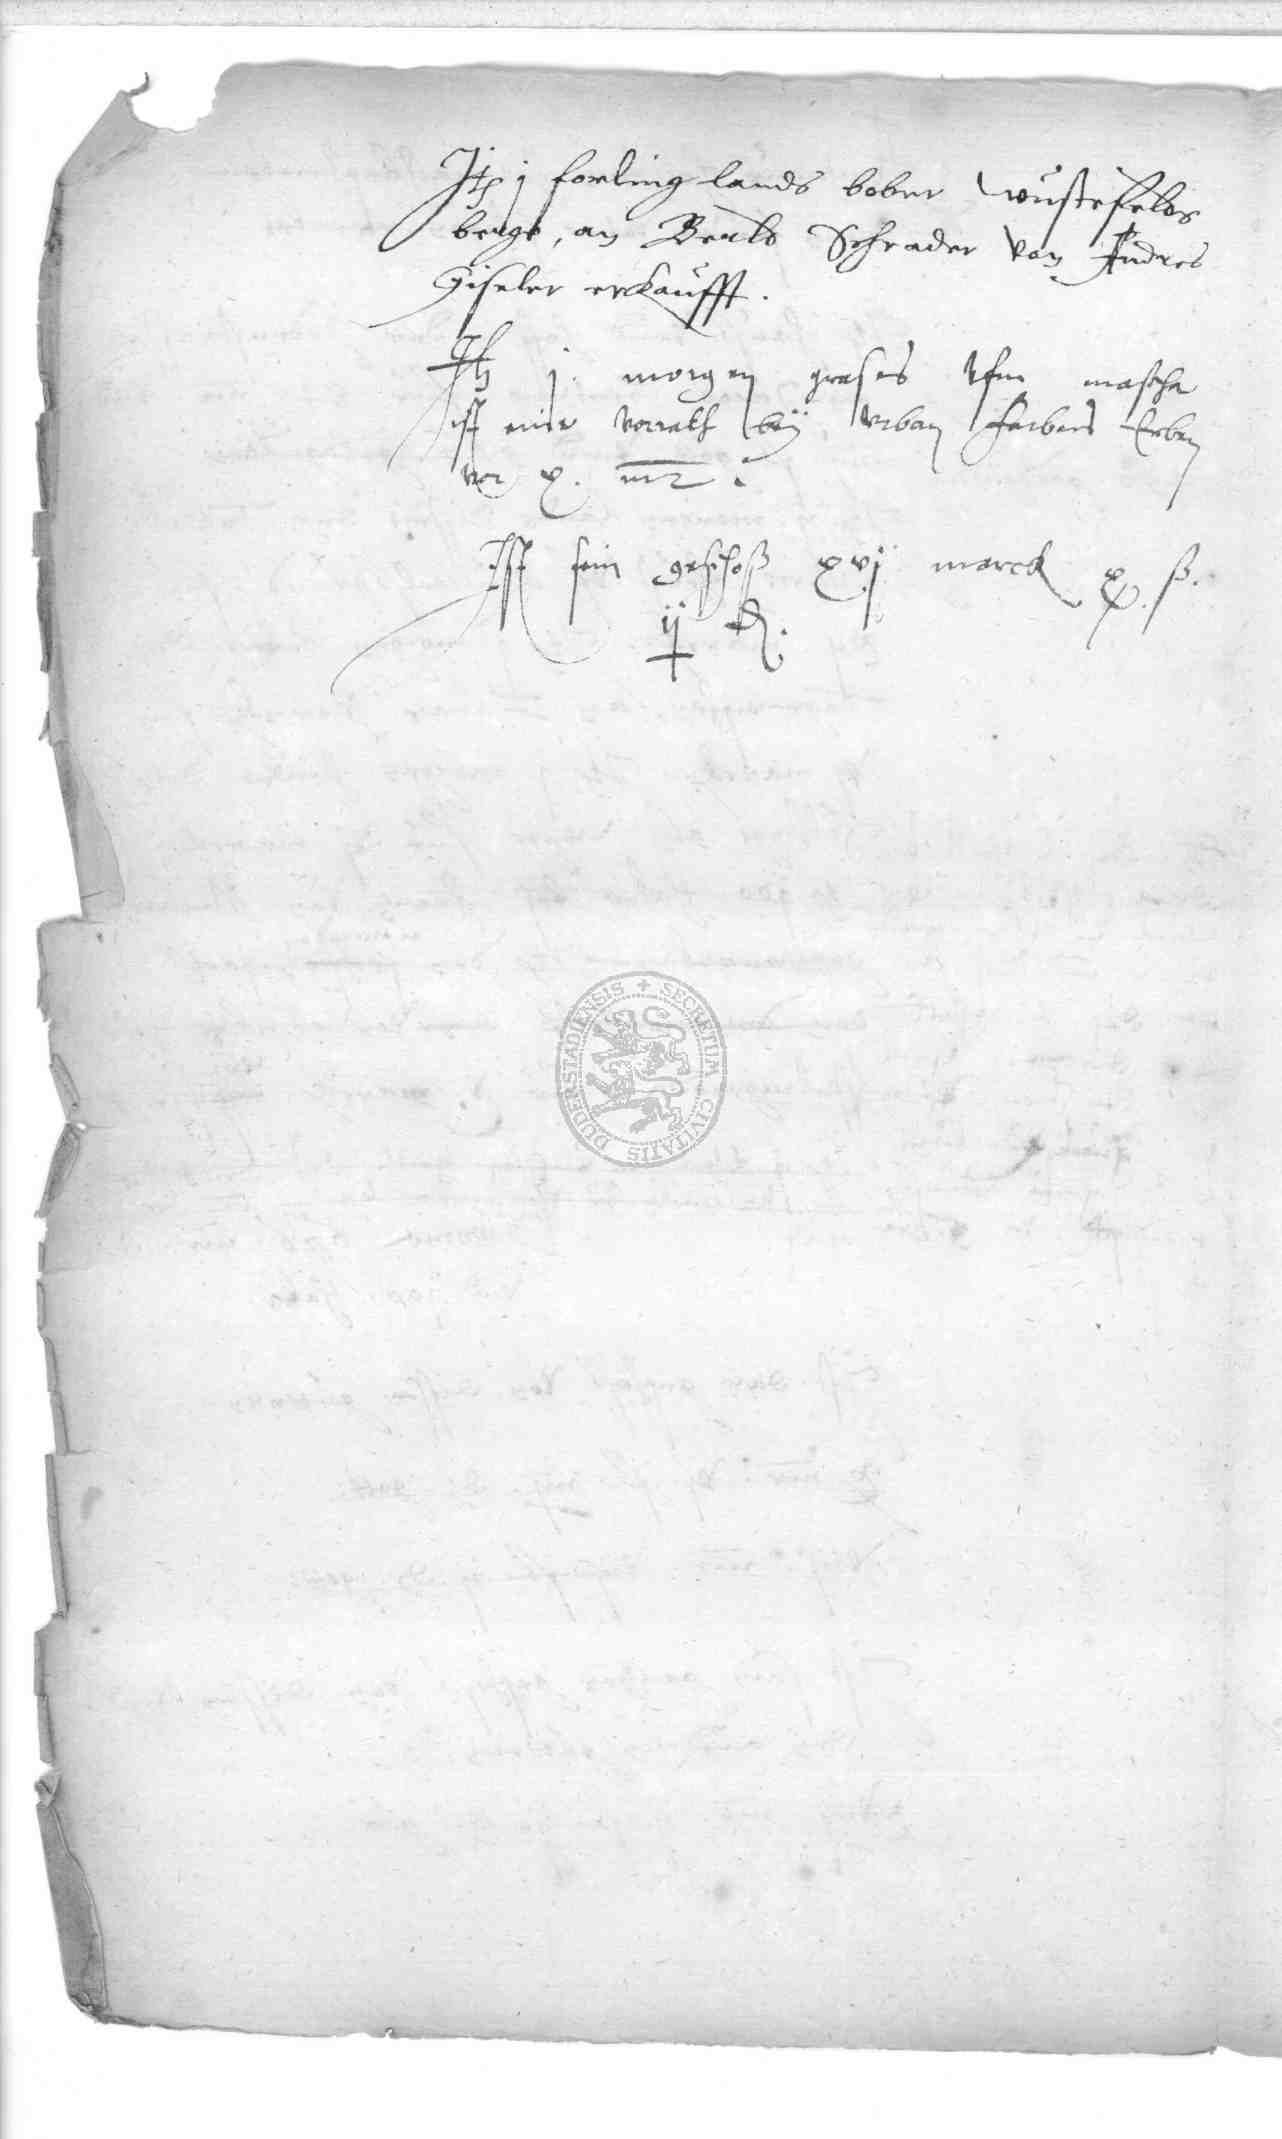 Jt. j forling lands bober Wustefelds
berge, an Berlt Schrader von Andres
Giseler erckaufft.
Jt. j. morgen grases vfm masche
ist mir vorratt bey Vrban Farbers Erben
vor x. mr.
Ist sein geschoß xvj marck x. ß.
ij d.
DUDERSTADIENSIS + SECRETUM CIVITATIS